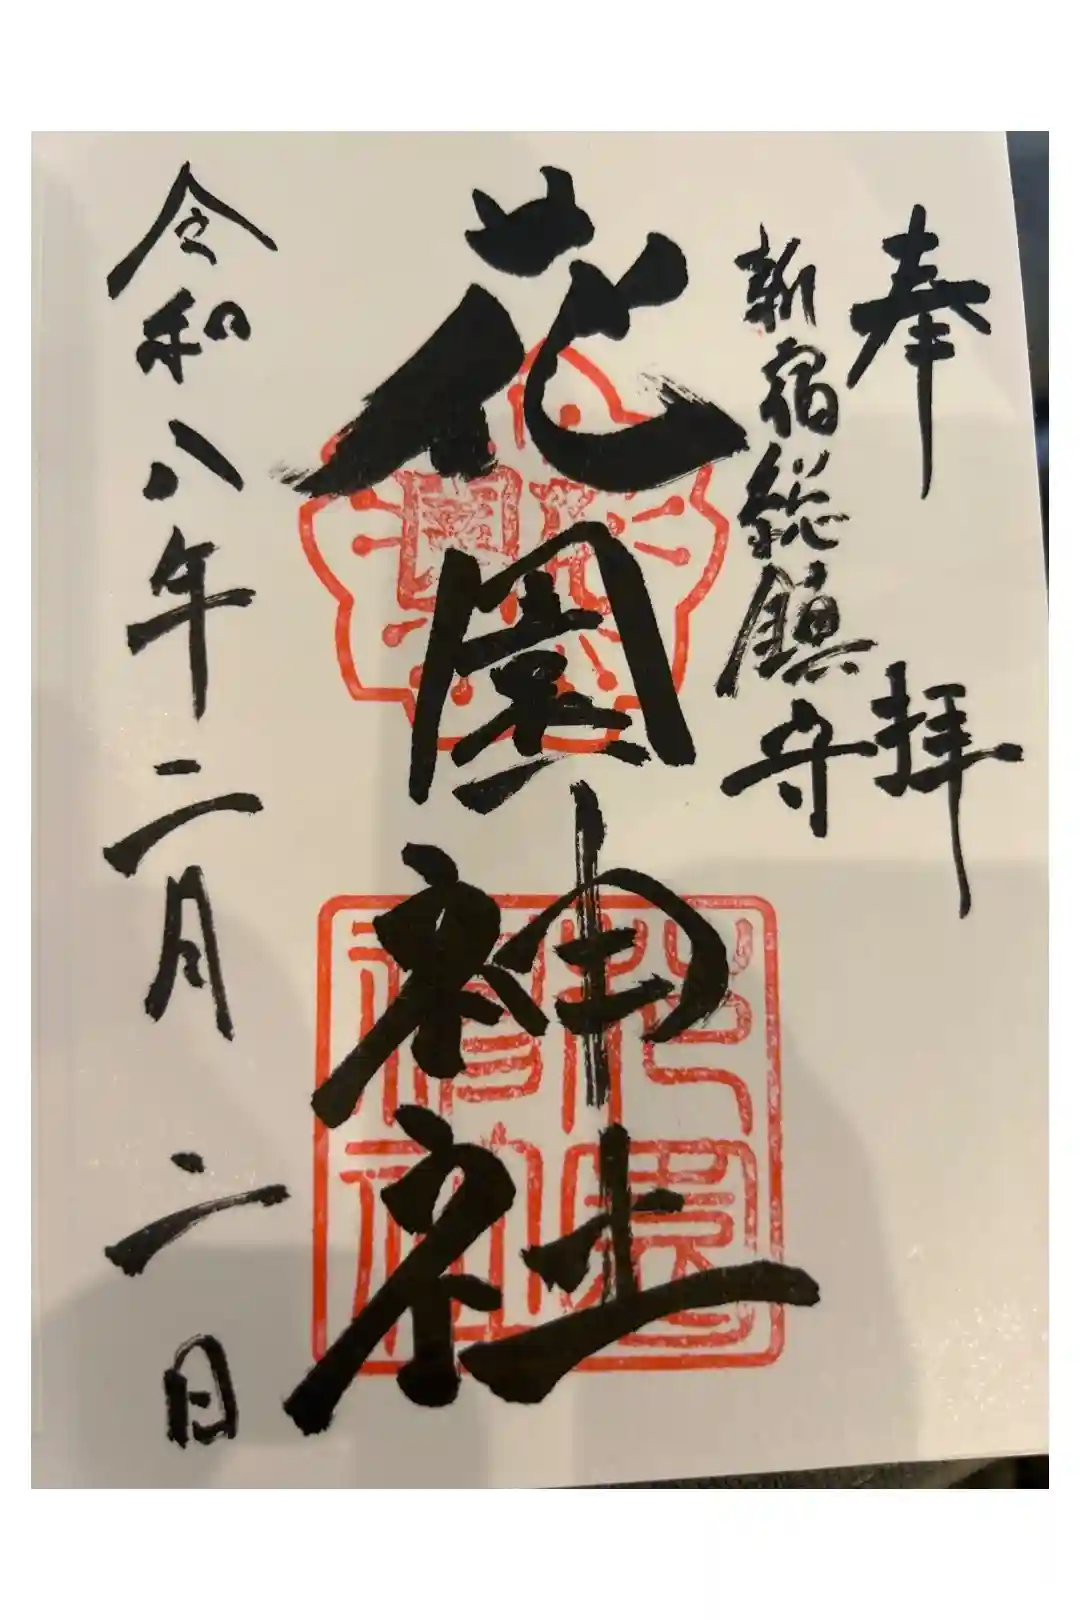 奉拝
新宿総鎮守
花園神社
令和八年二月二日
花園
花園神社